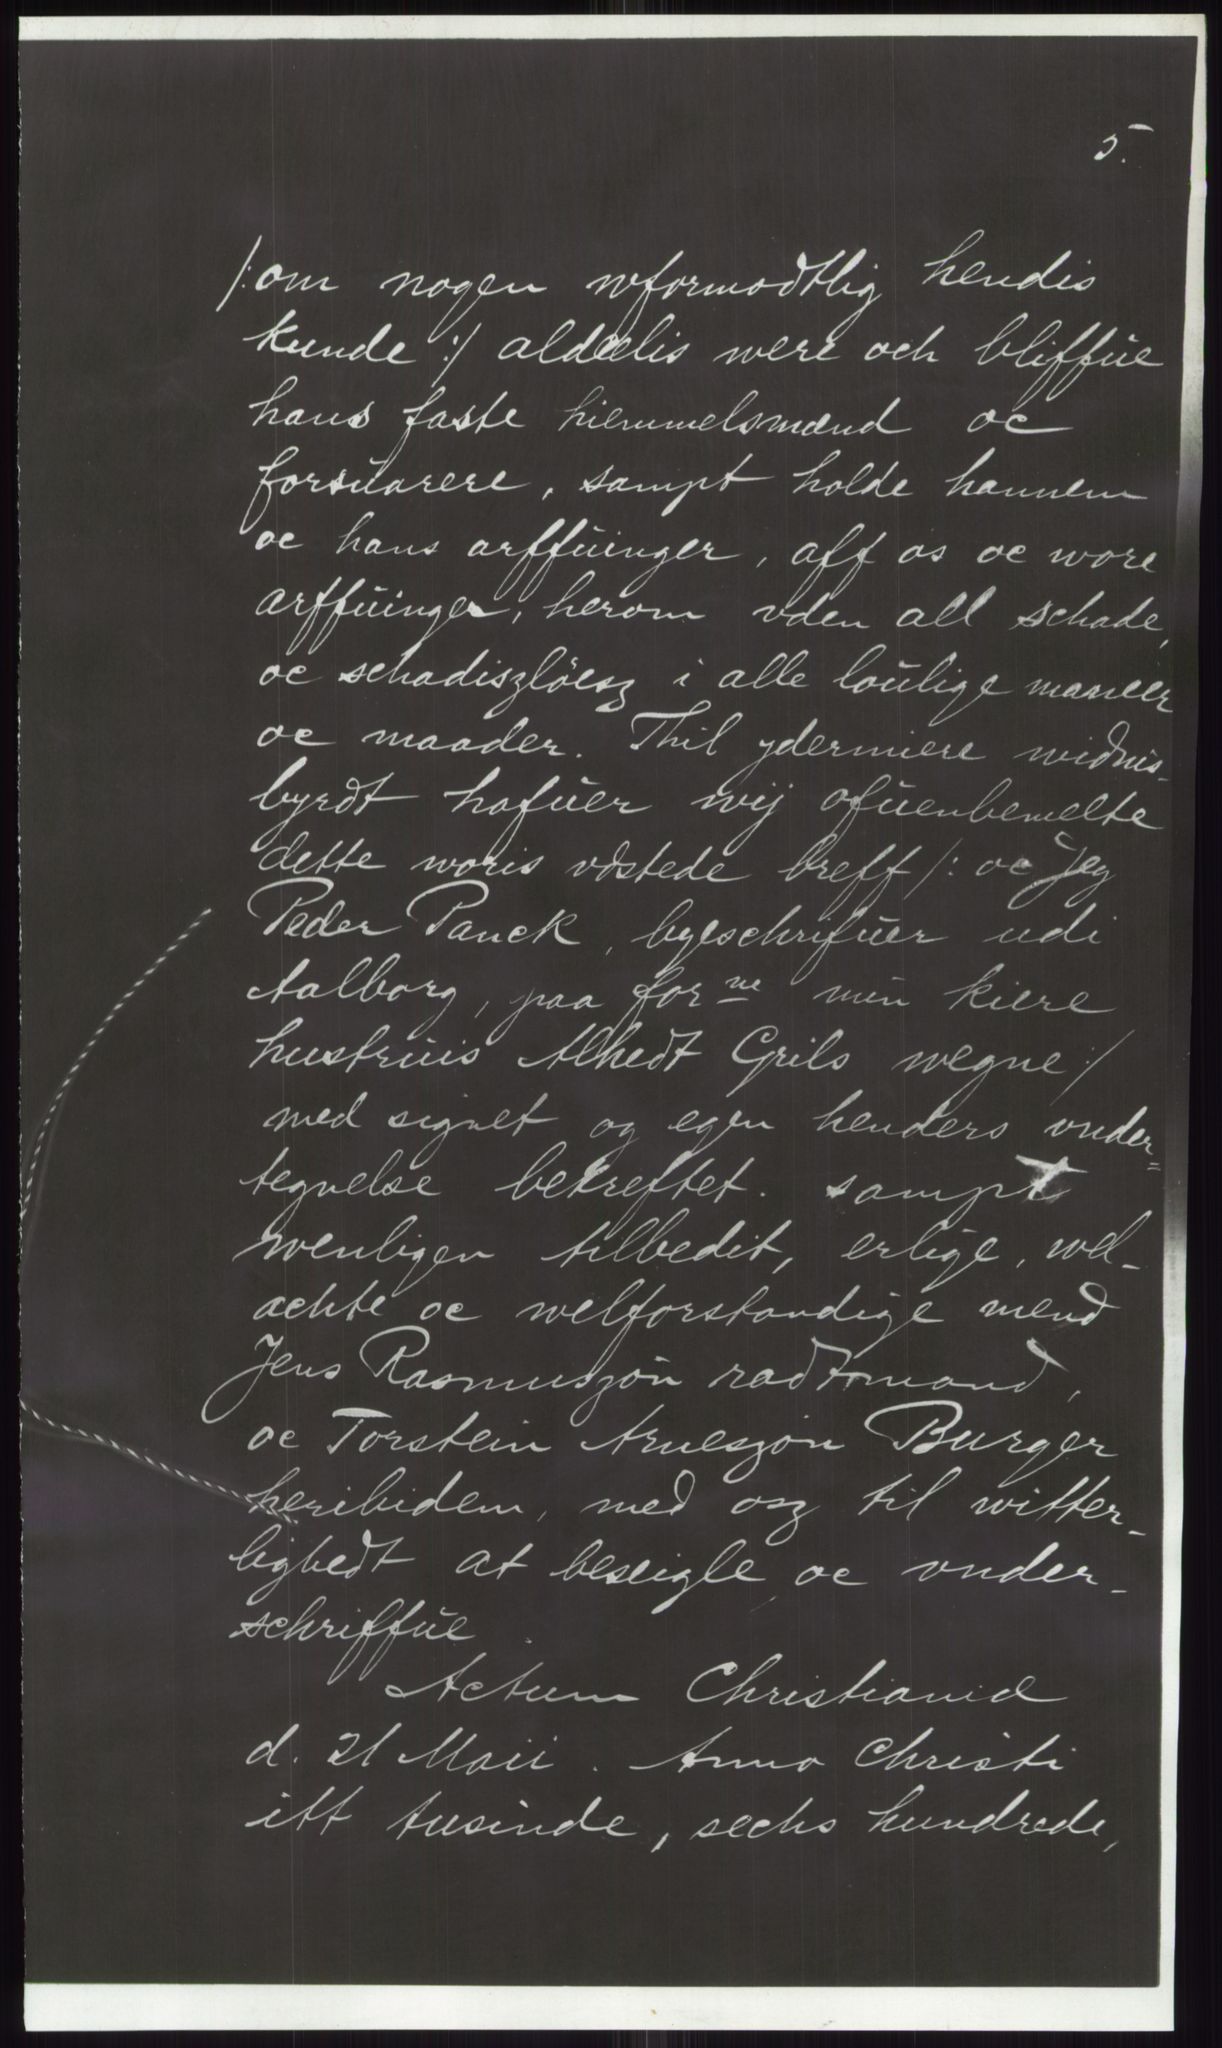 5.
/: om nogen wformodtlig hendis
kunde :/ aldelis were och bliffúe
hans faste hiemmelsmænd oc
forsúarere, sampt holde hannem
oc hans arffúinger, aff os oc wore
arffúinger, herom vden all schade,
oc schadiszlöesz i alle loúlige maneer
oc maader. Thil ydermiere widnis-
byrdt hafúer wij ofúenbemelte
dette woris vdstede breff /: oc Jeg
Peder Panck, byeschrifúer udi
Aalborg, paa for ne min kiere
hustrúis Alhedt Grils wegne :/
med signet og egen henders vnder=
tegnelse bekreftet. sampt
wenligen tilbedit, erlige, wel-
achte oc welforstandige mend
Jens Rasmuszön radtmand,
oc Torstein Arneszon Burger
heribidem, med osz til witter-
lighedt at beseigle oc vnder-
schriffúe.
Actum Christianiæ
d. 21 Maii. Anno Christi
itt tusinde, sechs hundrede,